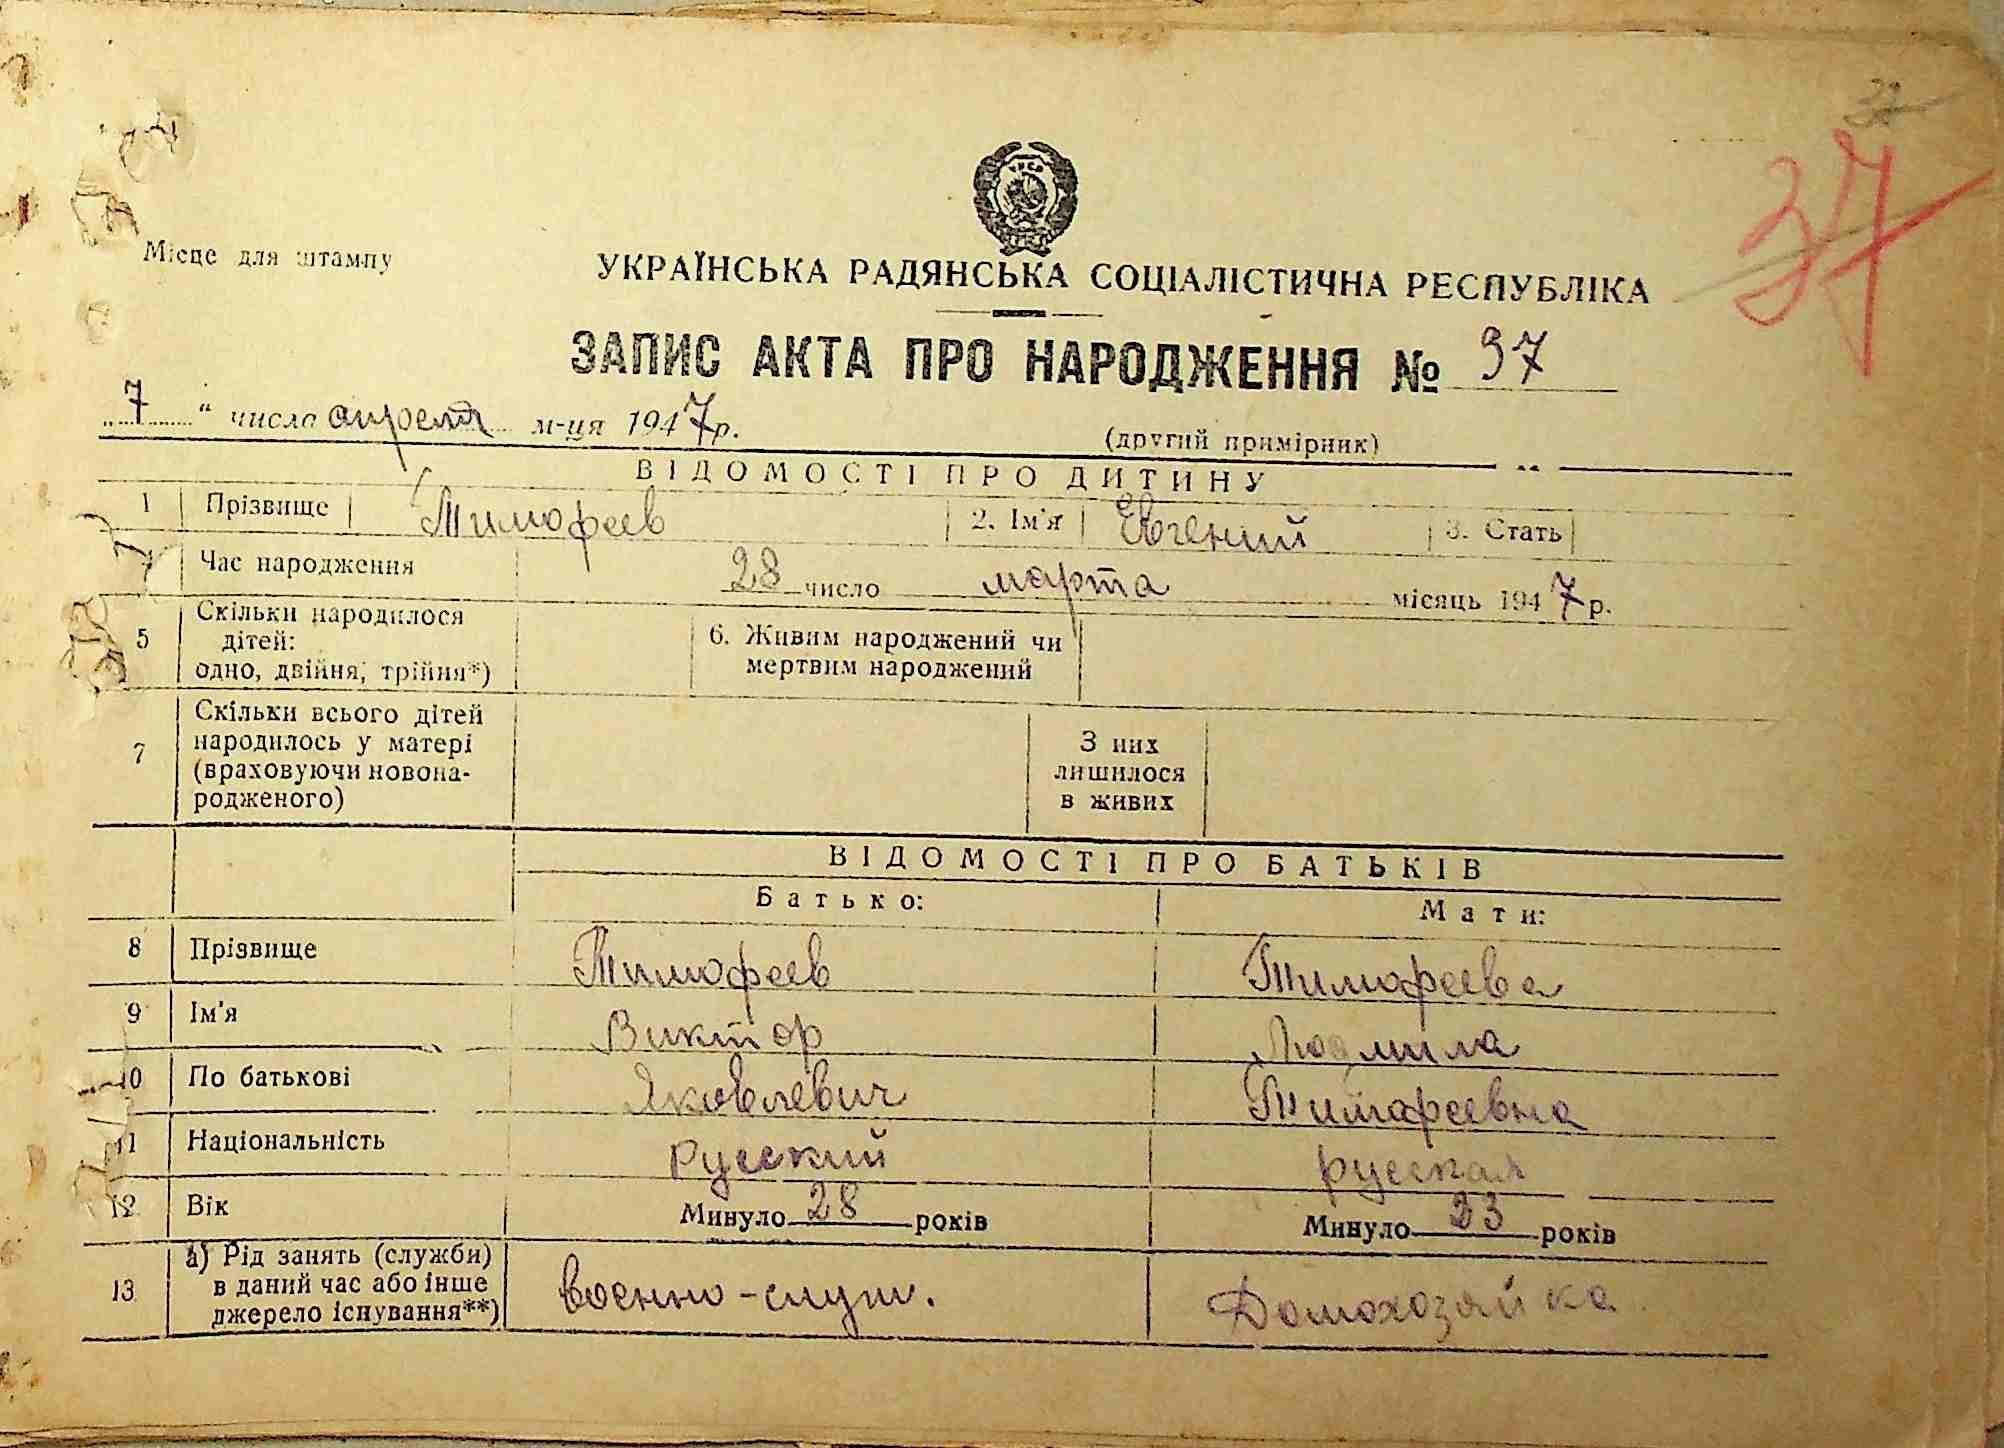 37
37
Місце для штампу
УКРАЇНСЬКА РАДЯНСЬКА СОЦІАЛІСТИЧНА РЕСПУБЛІКА
ЗАПИС АКТА ПРО НАРОДЖЕННЯ № 37
„ 7 “ числа апреля м-ця 1947 р.
(другий примірник)
ВІДОМОСТІ ПРО ДИТИНУ
1 Прізвище Тимофеев 2. Ім'я Евгений 3. Стать
Час народження 28 число марта місяць 1947 р.
5 Скільки народилося дітей: одно, двійня, трійня*) 6. Живим народжений чи мертвим народжений
7 Скільки всього дітей народилось у матері (враховуючи новона-родженого) З них лишилося в живих
ВІДОМОСТІ ПРО БАТЬКІВ
Батько: Мати:
8 Прізвище Тимофеев Тимофеева
9 Ім'я Виктор Людмила
10 По батькові Яковлевич Тимофеевна
11 Національність русский русская
12 Вік Минуло 28 років Минуло 23 років
13 а) Рід занять (служби) в даний час або інше джерело існування**) военно-служ. Домохозяйка